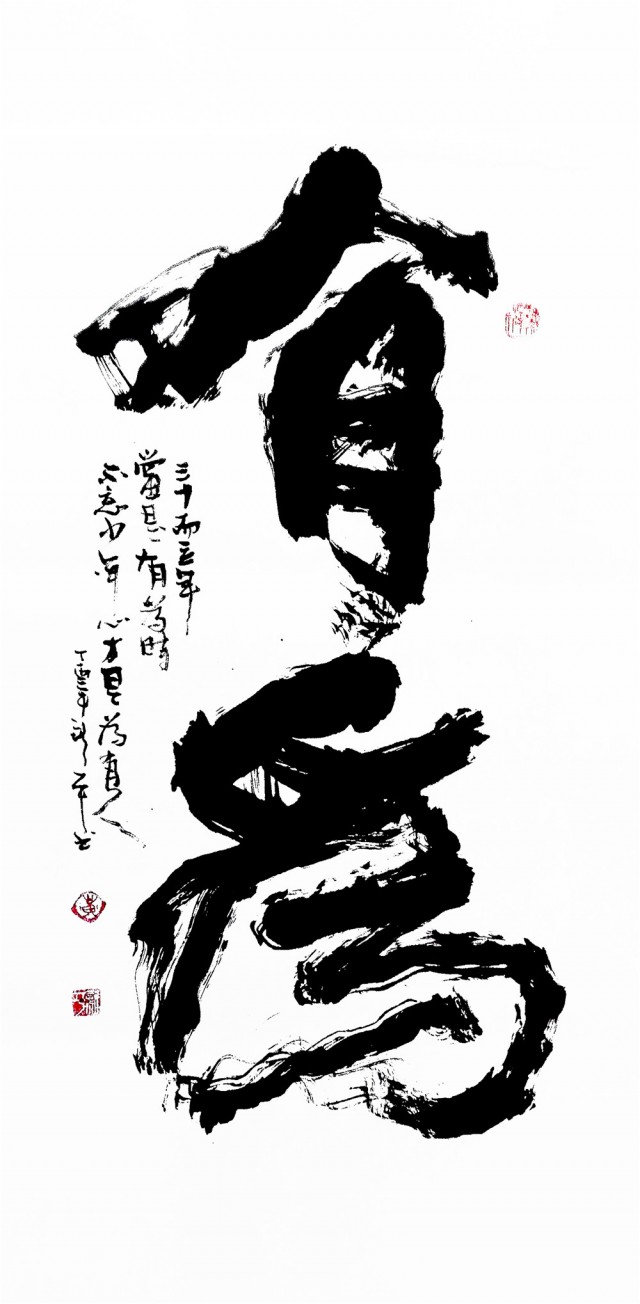 有為
三十而立年
當是有為時
不忘少年心 是為真人
丁酉年
黃